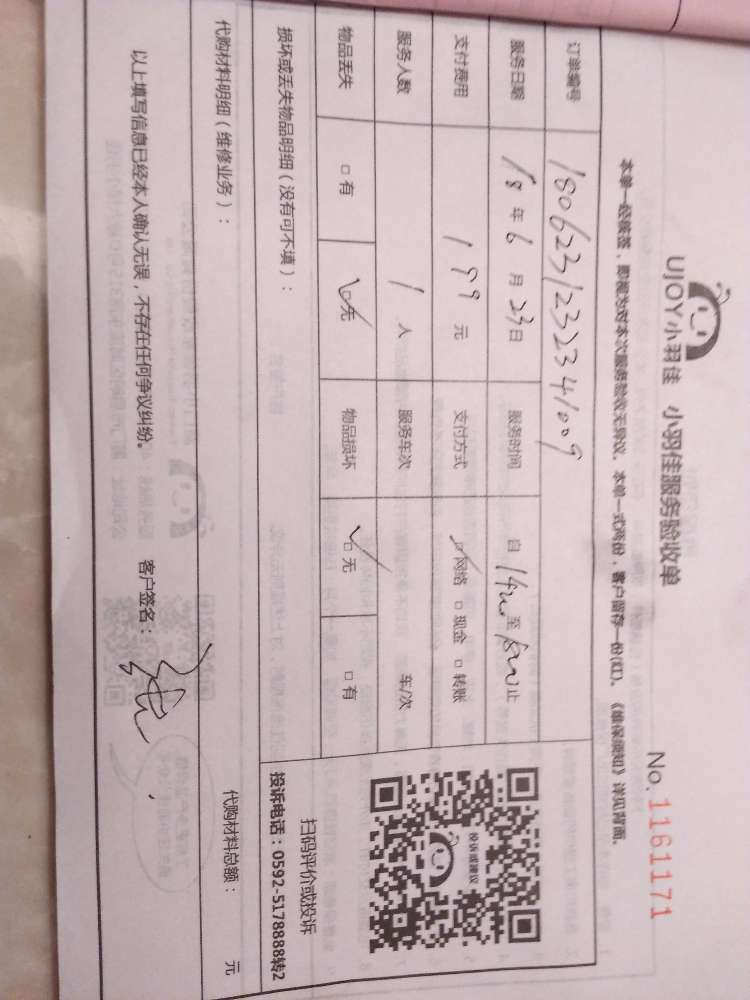 UJOY小羽佳 小羽佳服务验收单
No. 1161171
本单一经核签，即视为对本次服务验收无异议。本单一式两份，客户留存一份(红)。《维保须知》详见背面。
订单编号 1806231232341009
服务日期 18年6月23日 服务时间 自 至 止
支付费用 199元 支付方式 ☑网络 □现金 □转账
服务人数 1人 服务车次 车/次
物品丢失 □有 ☑无 物品损坏 ☑无 □有
损坏或丢失物品明细（没有可不填）：
投诉或建议
扫码评价或投诉
投诉电话：0592-5178888转2
代购材料明细（维修业务）： 代购材料总额： 元
以上填写信息已经本人确认无误，不存在任何争议纠纷。 客户签名：